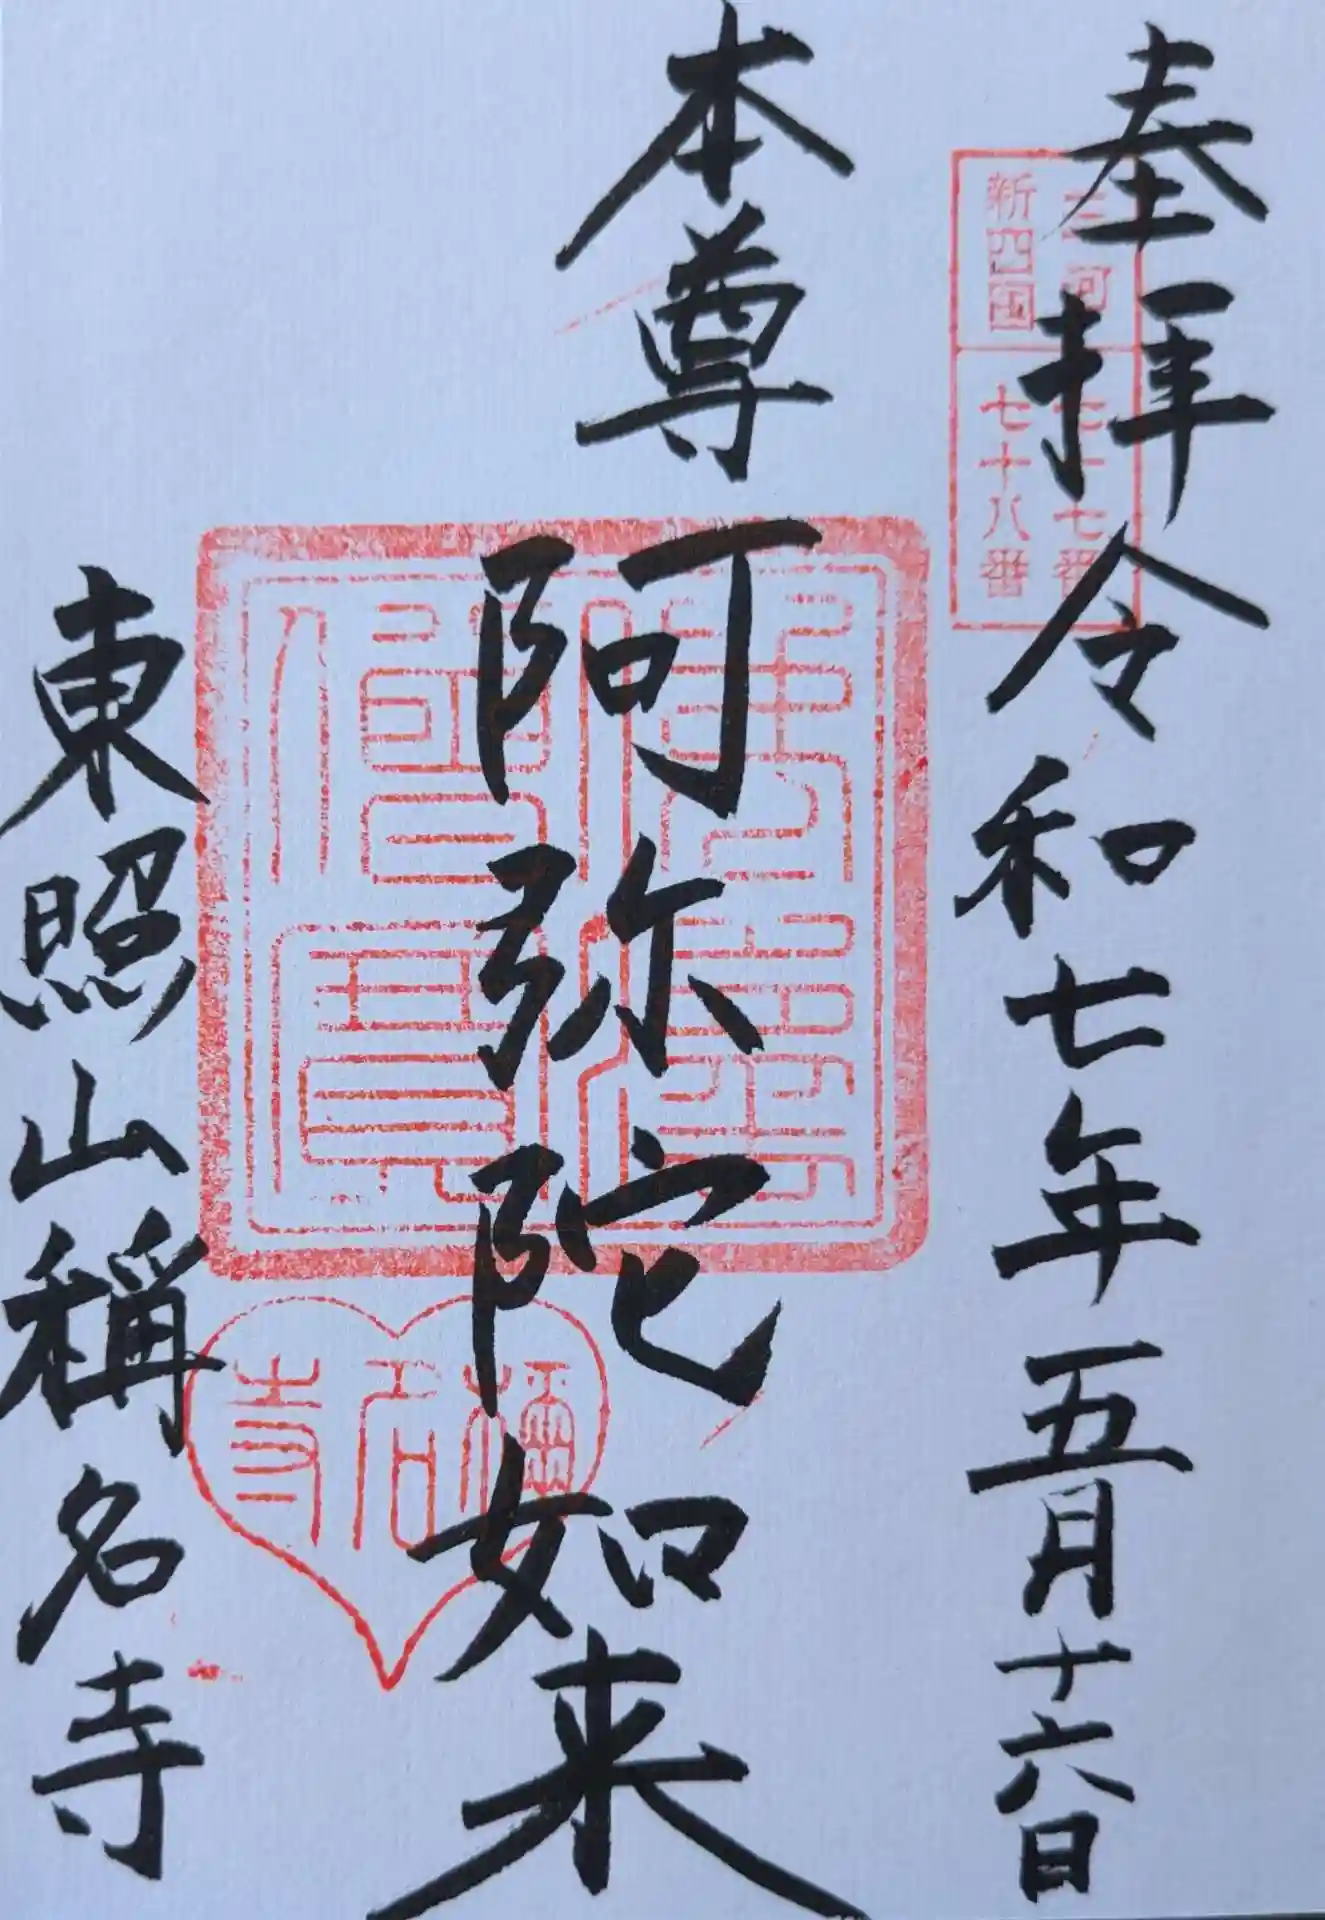 奉拝 令和七年五月十六日
三河
新四国
七十七番
七十八番
本尊 阿弥陀如来
東照山稱名寺